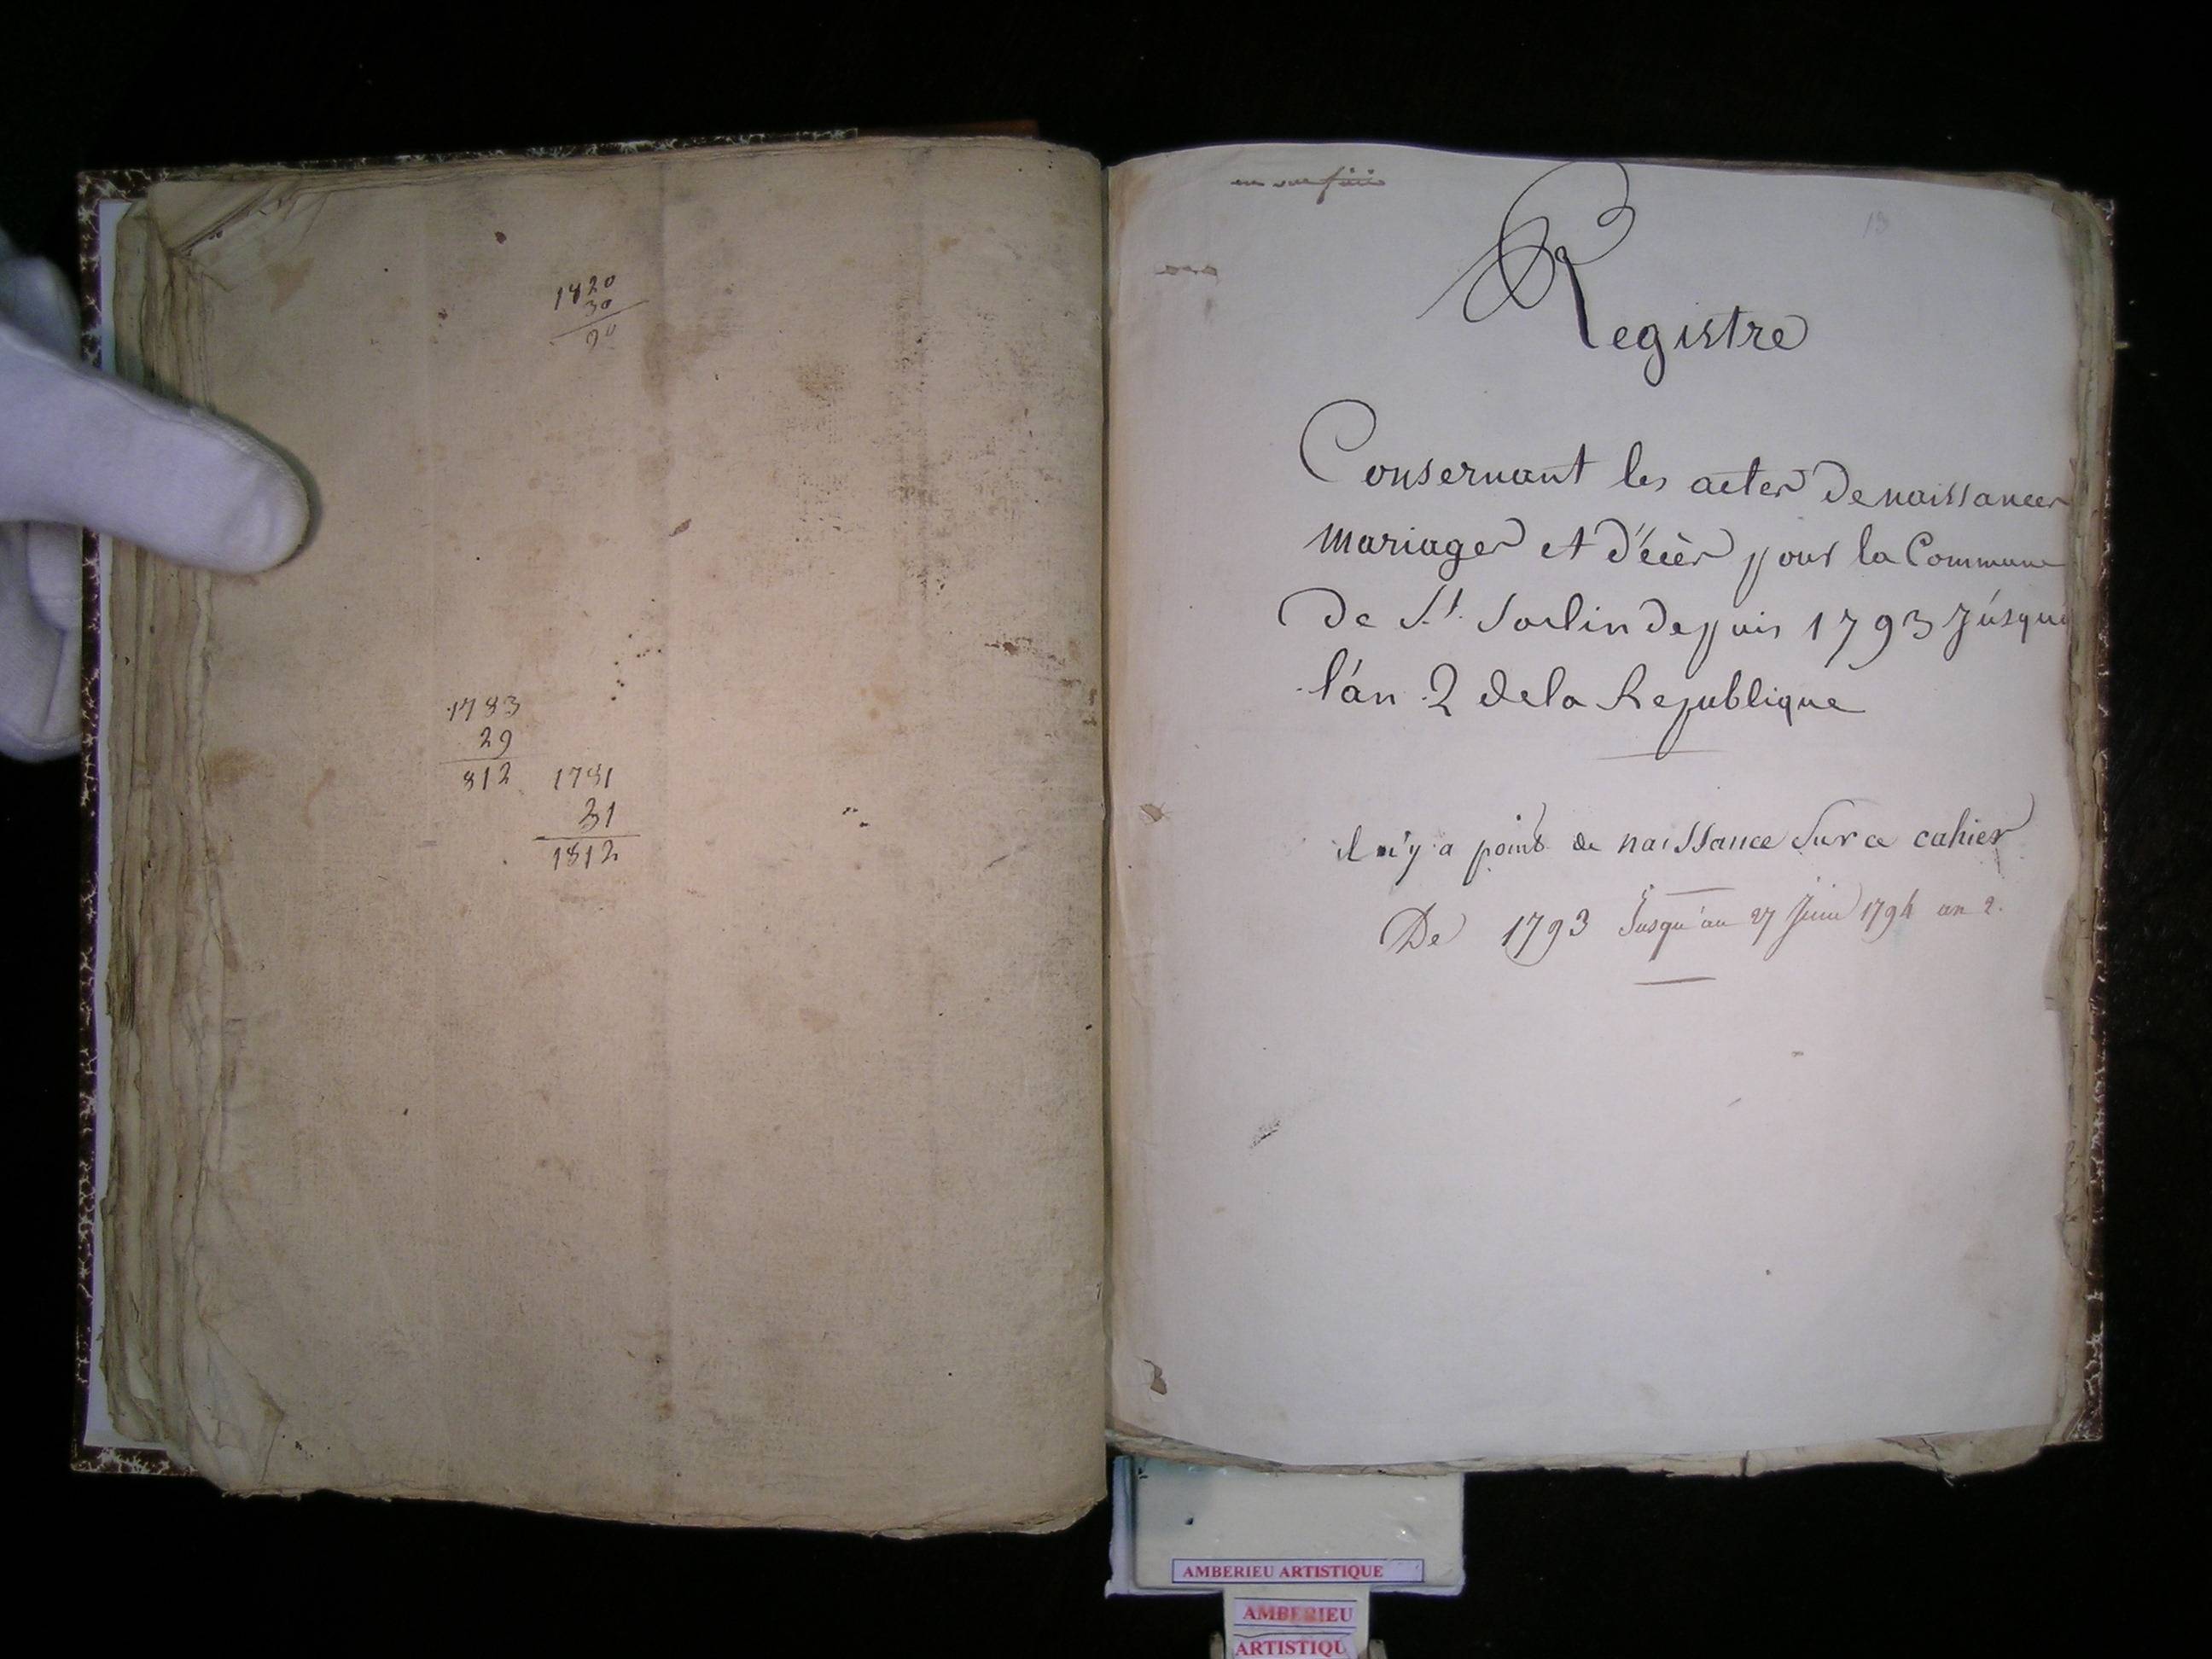 1820
30
90
1783
29
812
1781
31
1812
13
Registre
Consernant les actes de naissances
mariages et d'écès pour la Commune
de St. Sorlin depuis 1793 Júsqu
l'an 2 de la Republique
il n'y a point de naissance Sur ce cahier
De 1793 Jusqu'au 27 Juin 1794 an 2.
AMBERIEU ARTISTIQUE
AMBERIEU
ARTISTIQU